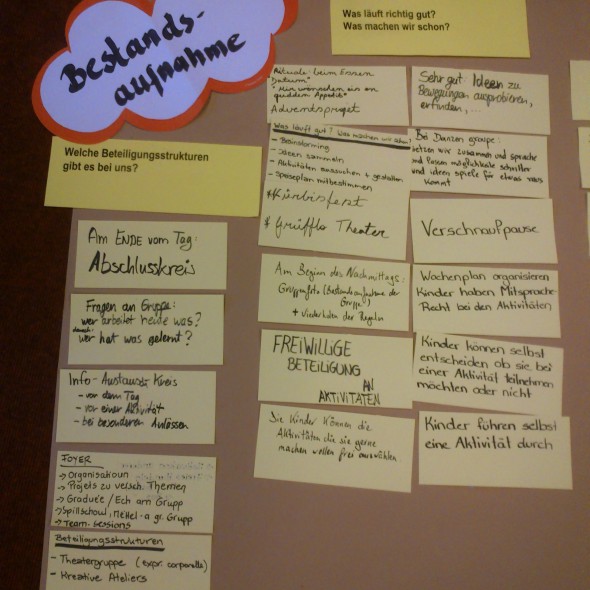 Bestands-
aufnahme
Was läuft richtig gut?
Was machen wir schon?
Welche Beteiligungsstrukturen
gibt es bei uns?
Am ENDE vom Tag:
Abschlusskreis
Fragen an Gruppe:
wer arbeitet heute was?
danach:
wer hat was gelernt?
Info-Austausch Kreis
- vor dem Tag
- vor einer Aktivität
- bei besonderen Anlässen
FOYER
-> Organisatioun
-> Projets zu versch. Themen
-> Graduée / Ech am Grupp
-> Spillschoul, MëHel - a gr. Grupp
-> Team-sessions
Beteiligungsstrukturen
- Theatergruppe (expr. corporelle)
- Kreative Ateliers
Rituale: beim Essen
"Datum"
"Mir wënschen iis en
gudden Appetit"
Adventsprojet
Was läuft gut? Was machen wir schon?
- Brainstorming
- Ideen sammeln
- Aktivitäten aussuchen + gestalten
- Speiseplan mitbestimmen
* Kürbisfest
* Grüffelo Theater
Am Beginn des Nachmittags:
Gruppeninfo (Bestandsaufnahme der
Gruppe)
+ Wiederholen der Regeln
FREIWILLIGE
BETEILIGUNG
AN
AKTIVITÄTEN
Die Kinder können die
Aktivitäten die sie gerne
machen wollen frei auswählen.
Sehr gut: Ideen zu
Bewegungen ausprobieren,
erfinden,...
Bei Danzen groupe:
setzen wir zusammen und sprache
und lassen möglichkeite schritter
und ideen spiele für etwas neues
kommt
Verschnaufpause
Wochenplan organisieren
Kinder haben Mitsprache
Recht bei den Aktivitäten
Kinder können selbst
entscheiden ob sie bei
einer Aktivität teilnehmen
möchten oder nicht
Kinder führen selbst
eine Aktivität durch